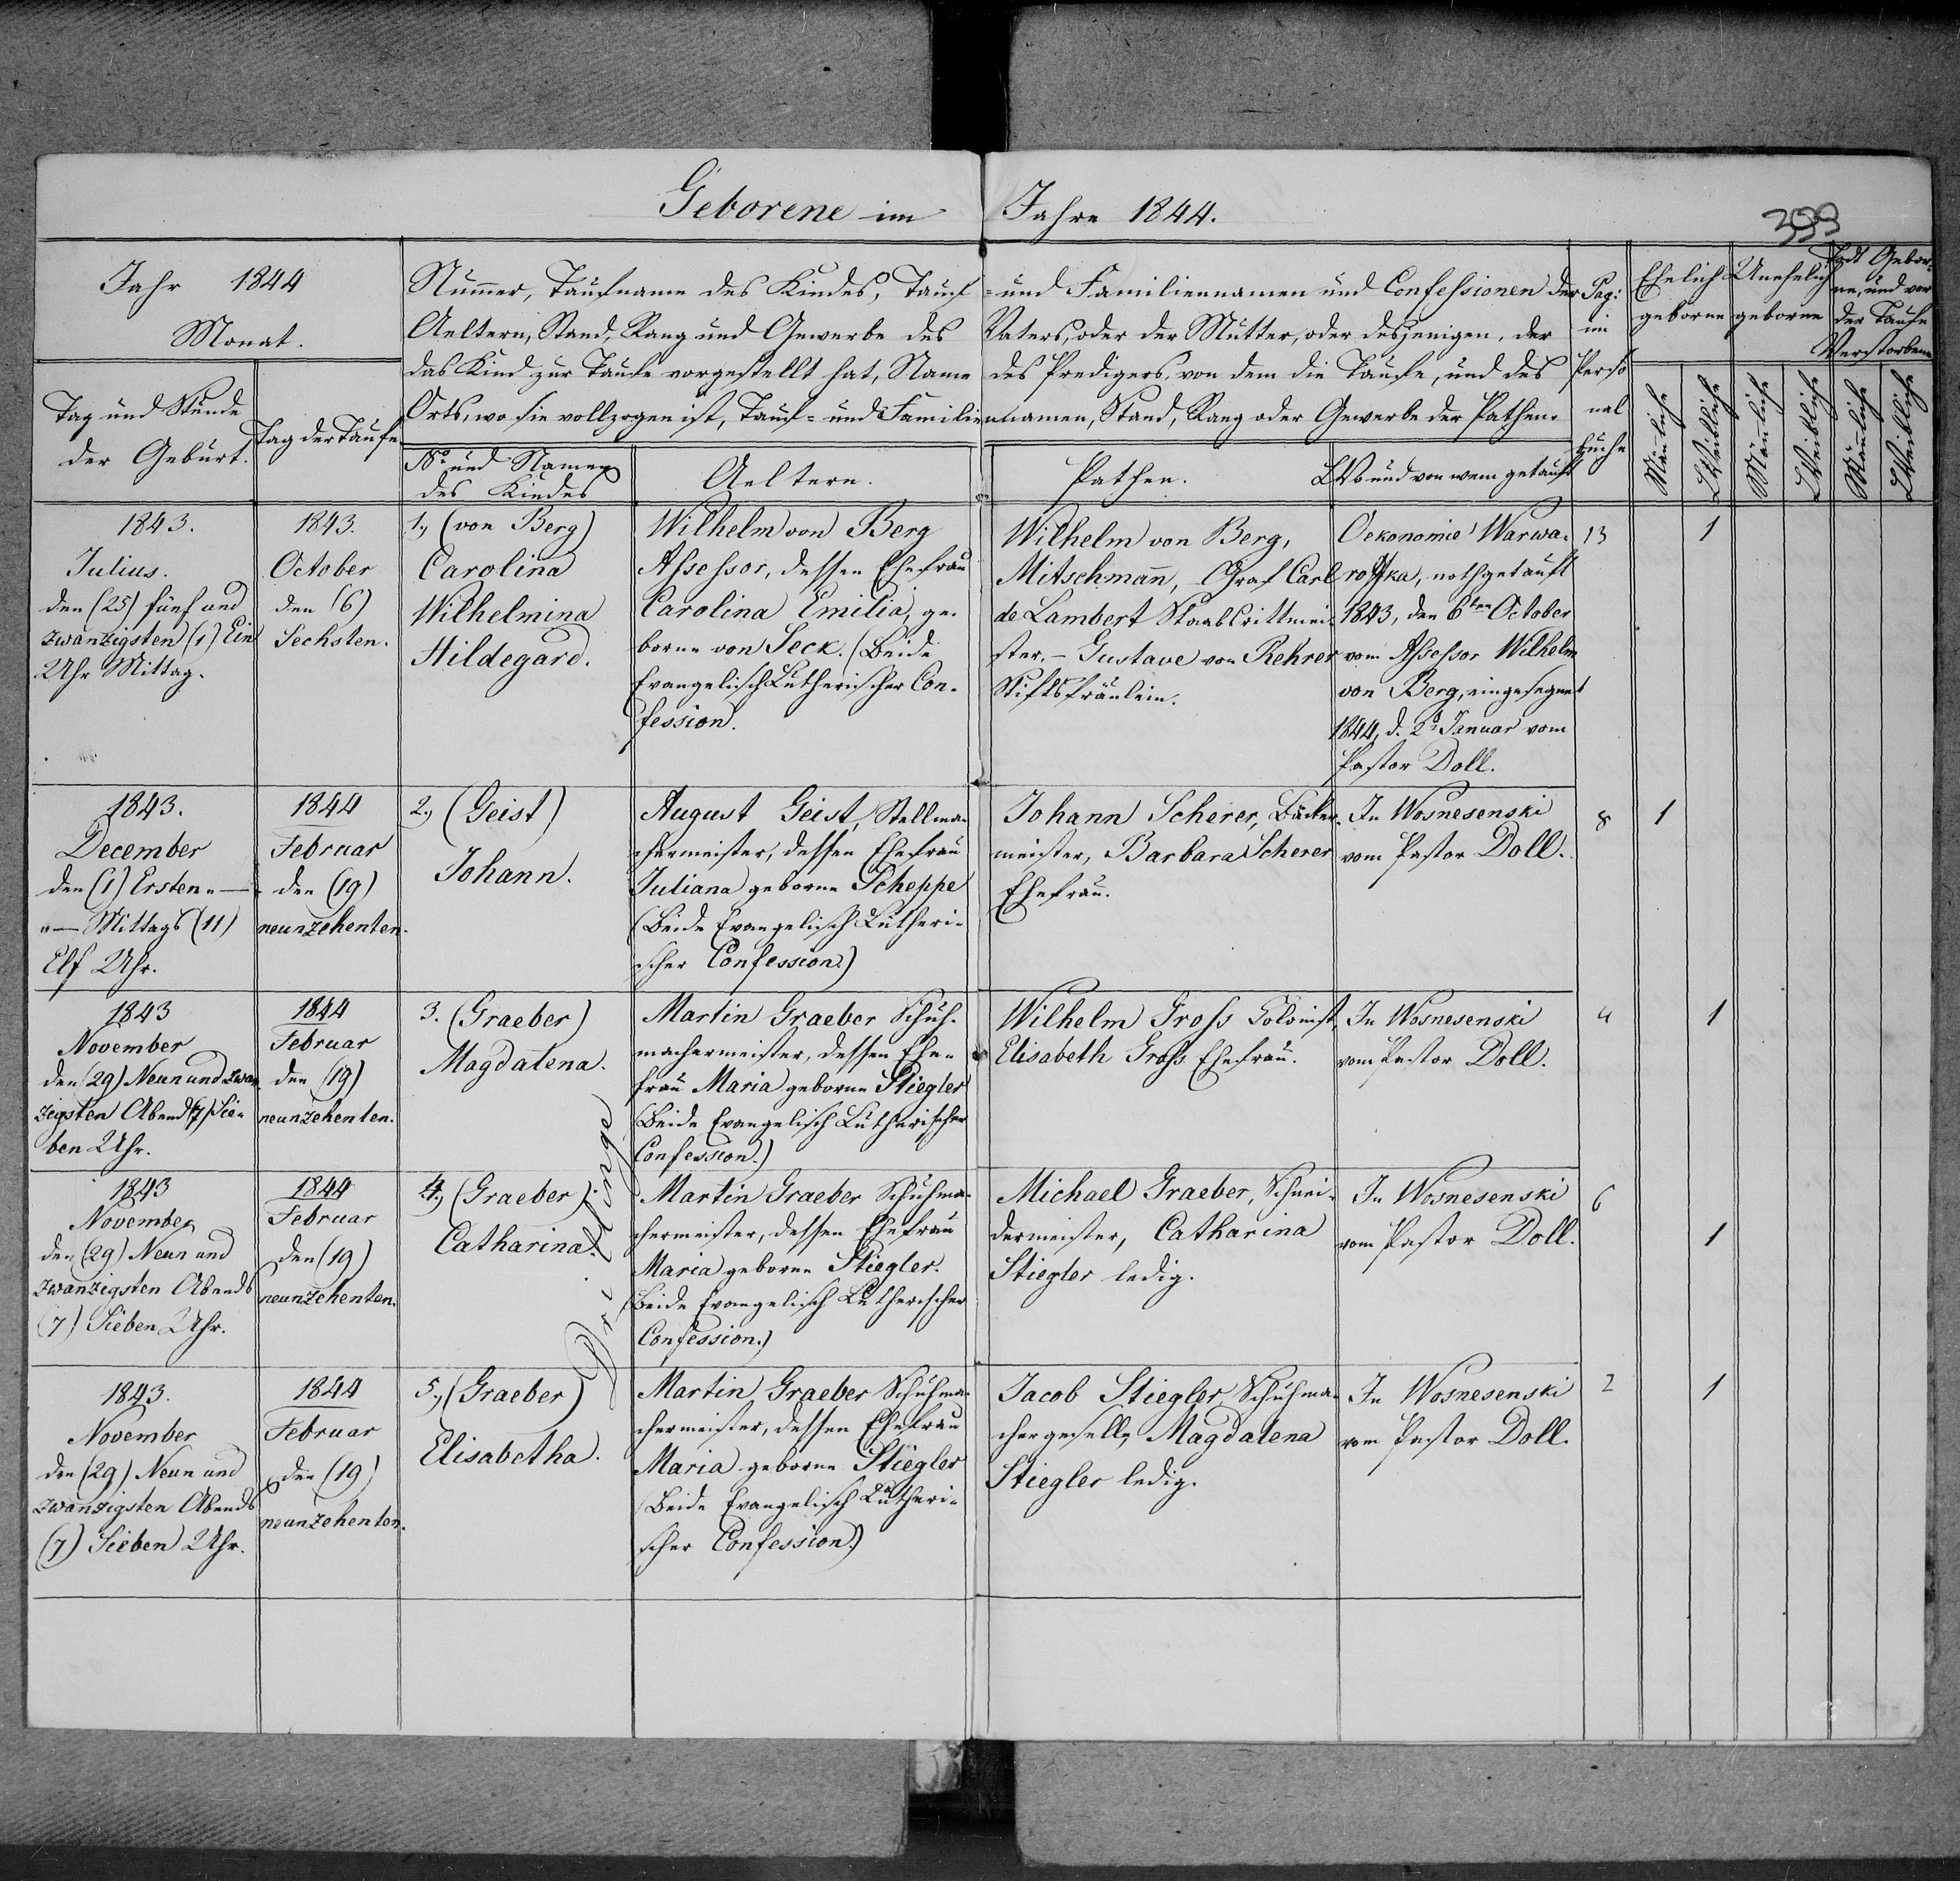 Geborene im Jahre 1844.
399
Jahr 1844
Monat.
Tag und Stunde
der Geburt.
Tag der Taufe
Num̄er, Taufname des Kindes, Tauf- und Familiennamen und Confessionen der
Aeltern, Stand, Rang und Gewerbe des Vaters, oder der Mutter, oder desjenigen, der
das Kind zur Taufe vorgestellt hat, Name des Predigers, von dem die Taufe, und des
Orts, wo sie vollzogen ist, Tauf- und Familiennamen, Stand, Rang oder Gewerbe der Pathen.
No und Namen
des Kindes
Aeltern.
Pathen.
Wo und von wem getauft
Pag:
im
Perso
nal
buche
Ehelich
geborne
Unehelich
geborne
Todt Gebor-
ne, und vor
der Taufe
Verstorbene
Mänliche
Weibliche
Mänliche
Weibliche
Mänliche
Weibliche
1843.
Julius.
den (25) fünf und
zwanzigsten (1) Ein
Uhr Mittag.
1843.
October
den (6)
Sechsten.
1., (von Berg)
Carolina
Wilhelmina
Hildegard.
Wilhelm von Berg
Assessor, dessen Ehefrau
Carolina Emilia, ge-
borne von Seck. (Beide
Evangelisch Lutherischer Con-
fession.
Wilhelm von Berg,
Mitschman̄, Graf Carl
de Lambert Staabsrittmei-
ster, – Gustave von Rehrer
Stiftsfräulein.
Oekonomie Warwa-
roffka, nothgetauft
1843, den 6ten October
vom Assessor Wilhelm
von Berg, eingesegnet
1844, d. 2n Januar vom
Pastor Doll.
13
1
1843.
December
den (1) Ersten „—
„— Mittags (11)
Elf Uhr.
1844
Februar
den (19)
neunzehenten.
2., (Geist)
Johann.
August Geist, Stellma-
chermeister, dessen Ehefrau
Juliana geborne Scheppe
(Beide Evangelisch Lutheri-
scher Confession.)
Johann Scherer, Bäcker-
meister, Barbara Scherer
Ehefrau.
In Wosnesenski
vom Pastor Doll.
8
1
1843
November
den (29) Neun und zwan-
zigsten Abend (7) Sie-
ben Uhr.
1844
Februar
den (19)
neunzehenten.
3. (Graeber)
Magdalena.
Martin Graeber Schuh-
machermeister, dessen Ehe-
frau Maria geborne Stiegler
(Beide Evangelisch Lutherischer
Confession.)
Wilhelm Gross Colonist,
Elisabeth Gross Ehefrau.
In Wosnesenski
vom Pastor Doll.
4
1
Drillinge
1843
November
den (29) Neun und
zwanzigsten Abends
(7) Sieben Uhr.
1844
Februar
den (19)
neunzehenten.
4., (Graeber).
Catharina.
Martin Graeber Schuhma-
chermeister, dessen Ehefrau
Maria geborne Stiegler.
(Beide Evangelisch Lutherischer
Confession.)
Michael Graeber, Schnei-
dermeister, Catharina
Stiegler ledig.
In Wosnesenski
vom Pastor Doll.
6
1
1843.
November
den (29) Neun und
zwanzigsten Abends
(7) Sieben Uhr.
1844
Februar
den (19)
neunzehenten.
5., (Graeber)
Elisabetha.
Martin Graeber Schuhma-
chermeister, dessen Ehefrau
Maria geborne Stiegler
(Beide Evangelisch Lutheri-
scher Confession.)
Jacob Stiegler, Schuhma-
chergeselle, Magdalena
Stiegler ledig.
In Wosnesenski
vom Pastor Doll.
2
1